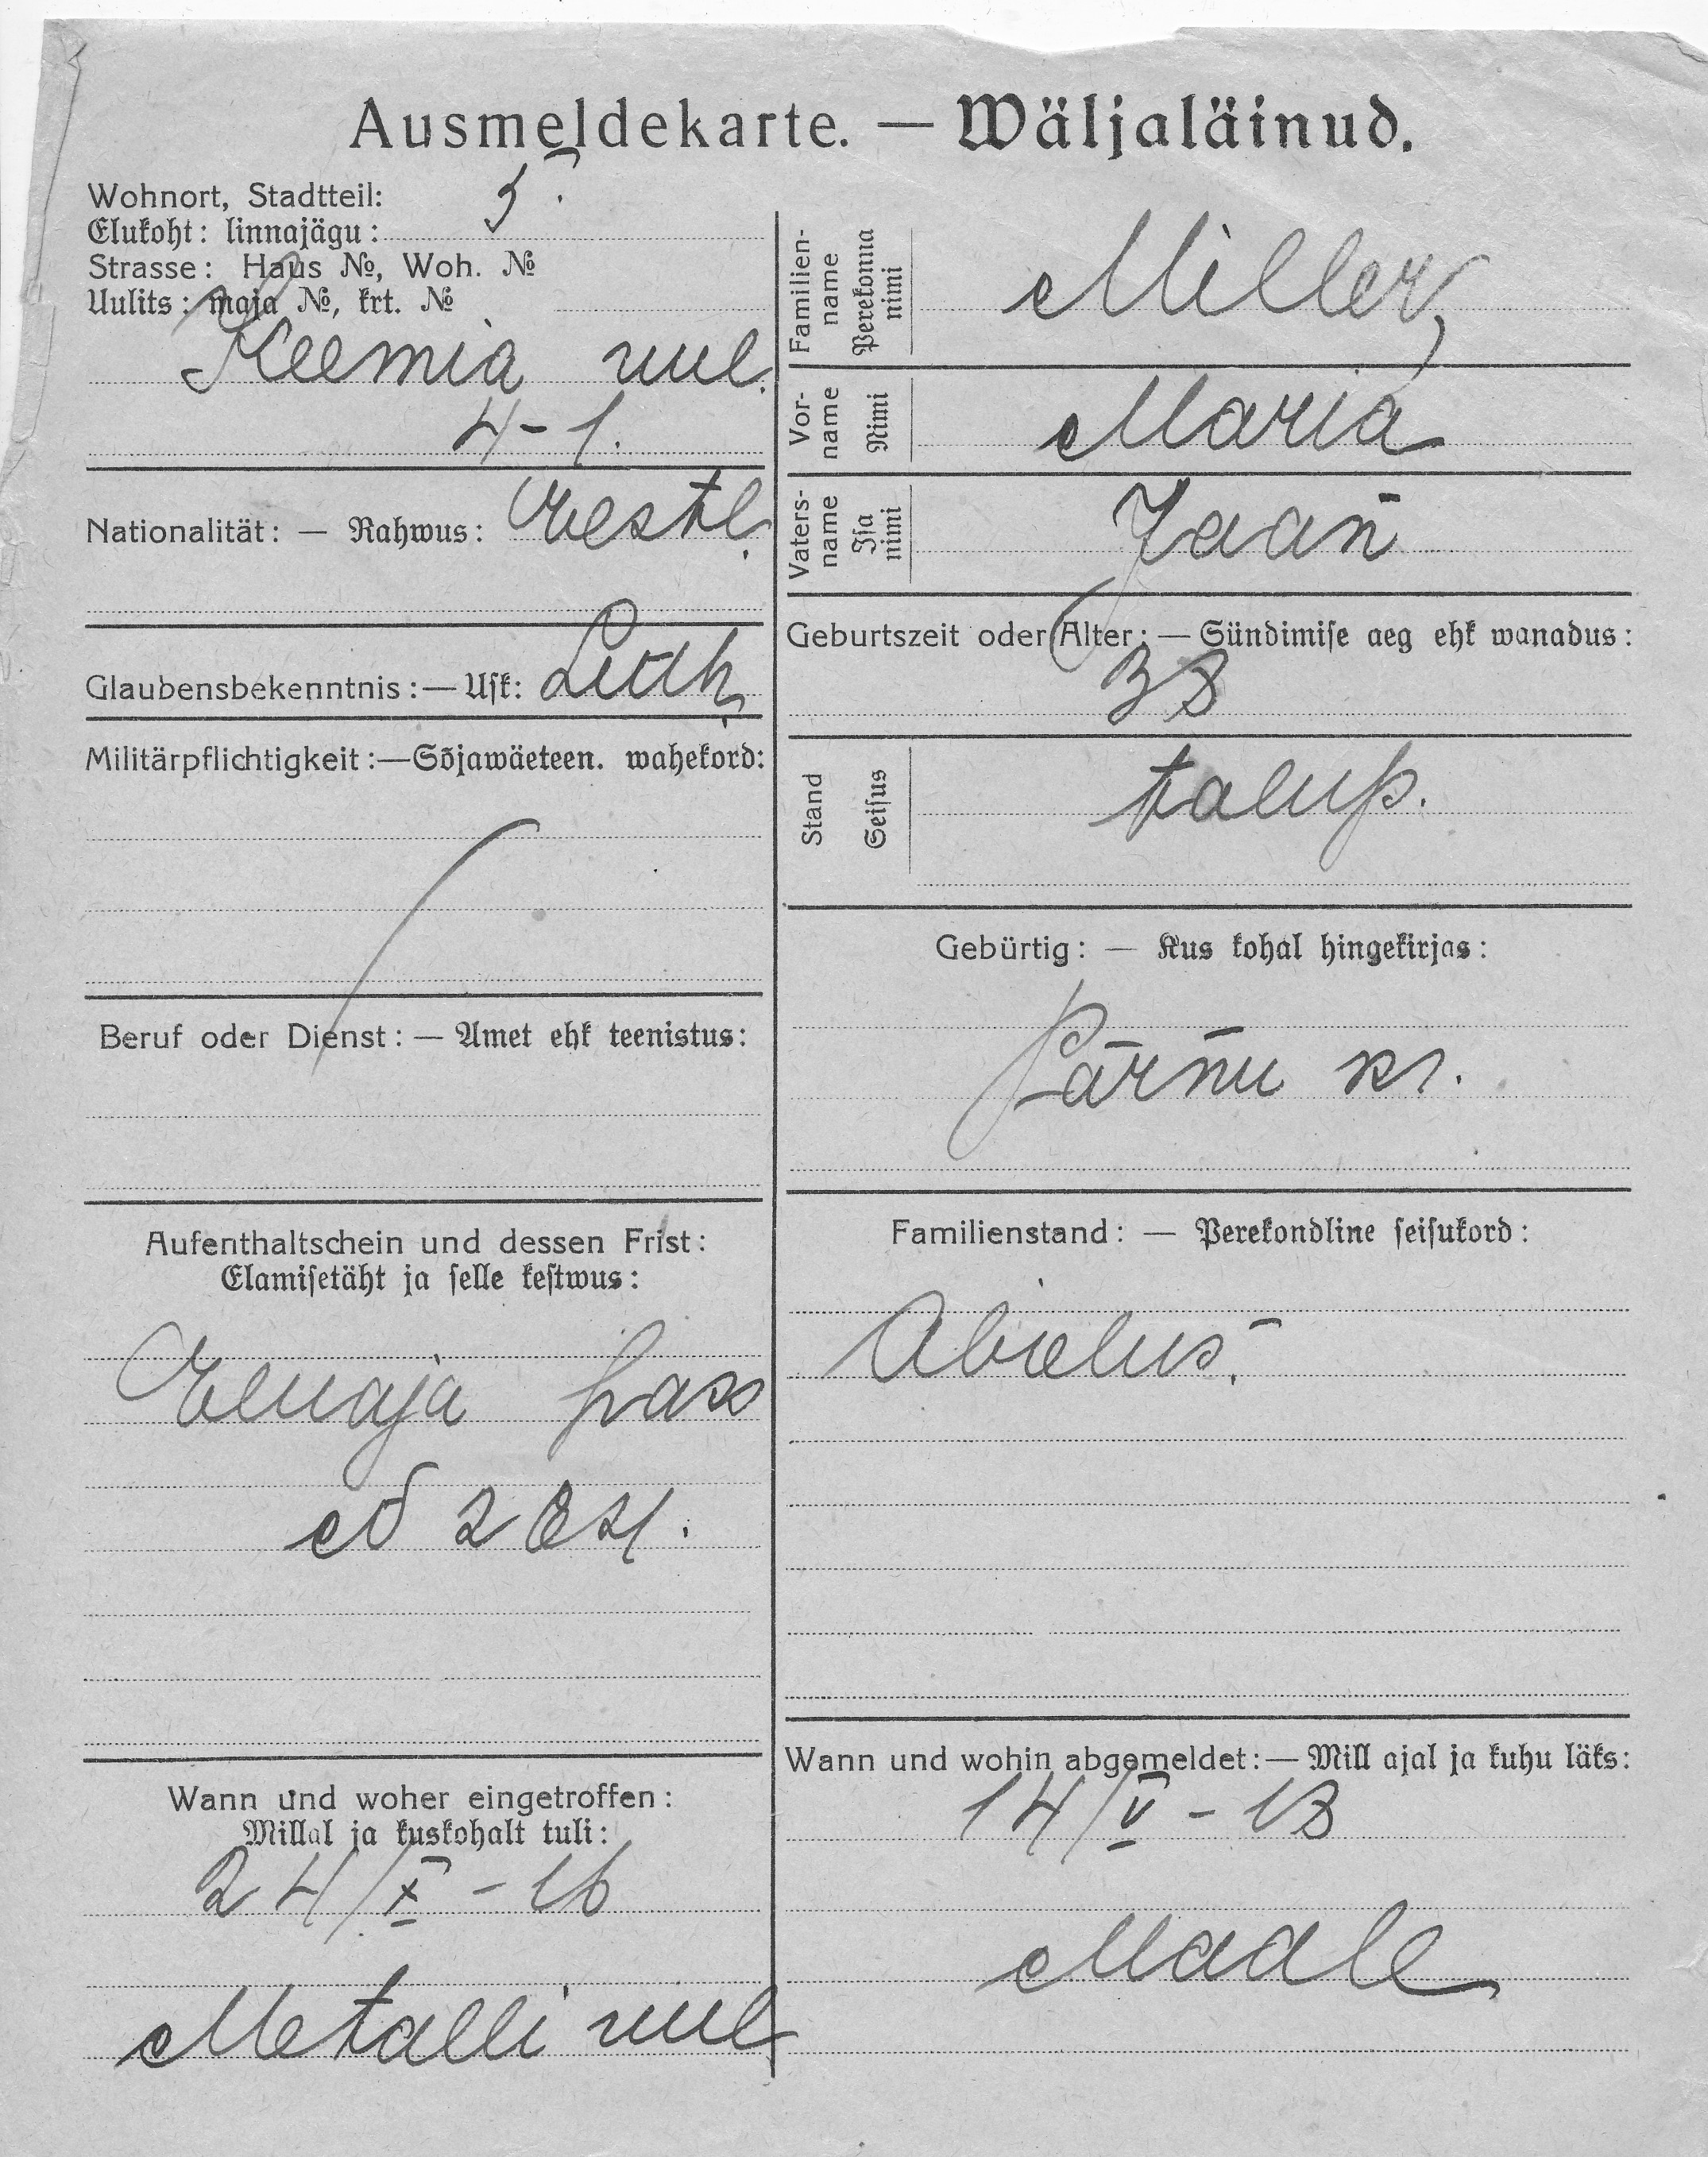 Ausmeldekarte. — Wäljaläinud.
Wohnort, Stadtteil:
Elukoht: linnajägu: 5.
Strasse: Haus №, Woh. №
Uulits: maja №, krt. №
Keemia uul.
4-1.
Nationalität: — Rahwus: Eestl.
Glaubensbekenntnis:— Usk: Luth.
Militärpflichtigkeit:—Sõjawäeteen. wahekord:
Beruf oder Dienst: — Amet ehk teenistus:
Aufenthaltschein und dessen Frist:
Elamisetäht ja selle kestwus:
Eluaja pass
Wann und woher eingetroffen:
Millal ja kuskohalt tuli:
24/X - 16
Metalli uul
Familien-
name
Perekonna
nimi
Miller,
Vor-
name
Nimi
Maria
Vaters-
name
Isa
nimi
Jaan
Geburtszeit oder Alter: — Sündimise aeg ehk wanadus:
38
Stand
Seisus
talup.
Gebürtig: — Kus kohal hingekirjas:
Pärnu kr.
Familienstand: — Perekondline seisukord:
Abielus.
Wann und wohin abgemeldet:— Mill ajal ja kuhu läks:
14/V - 18
Maale